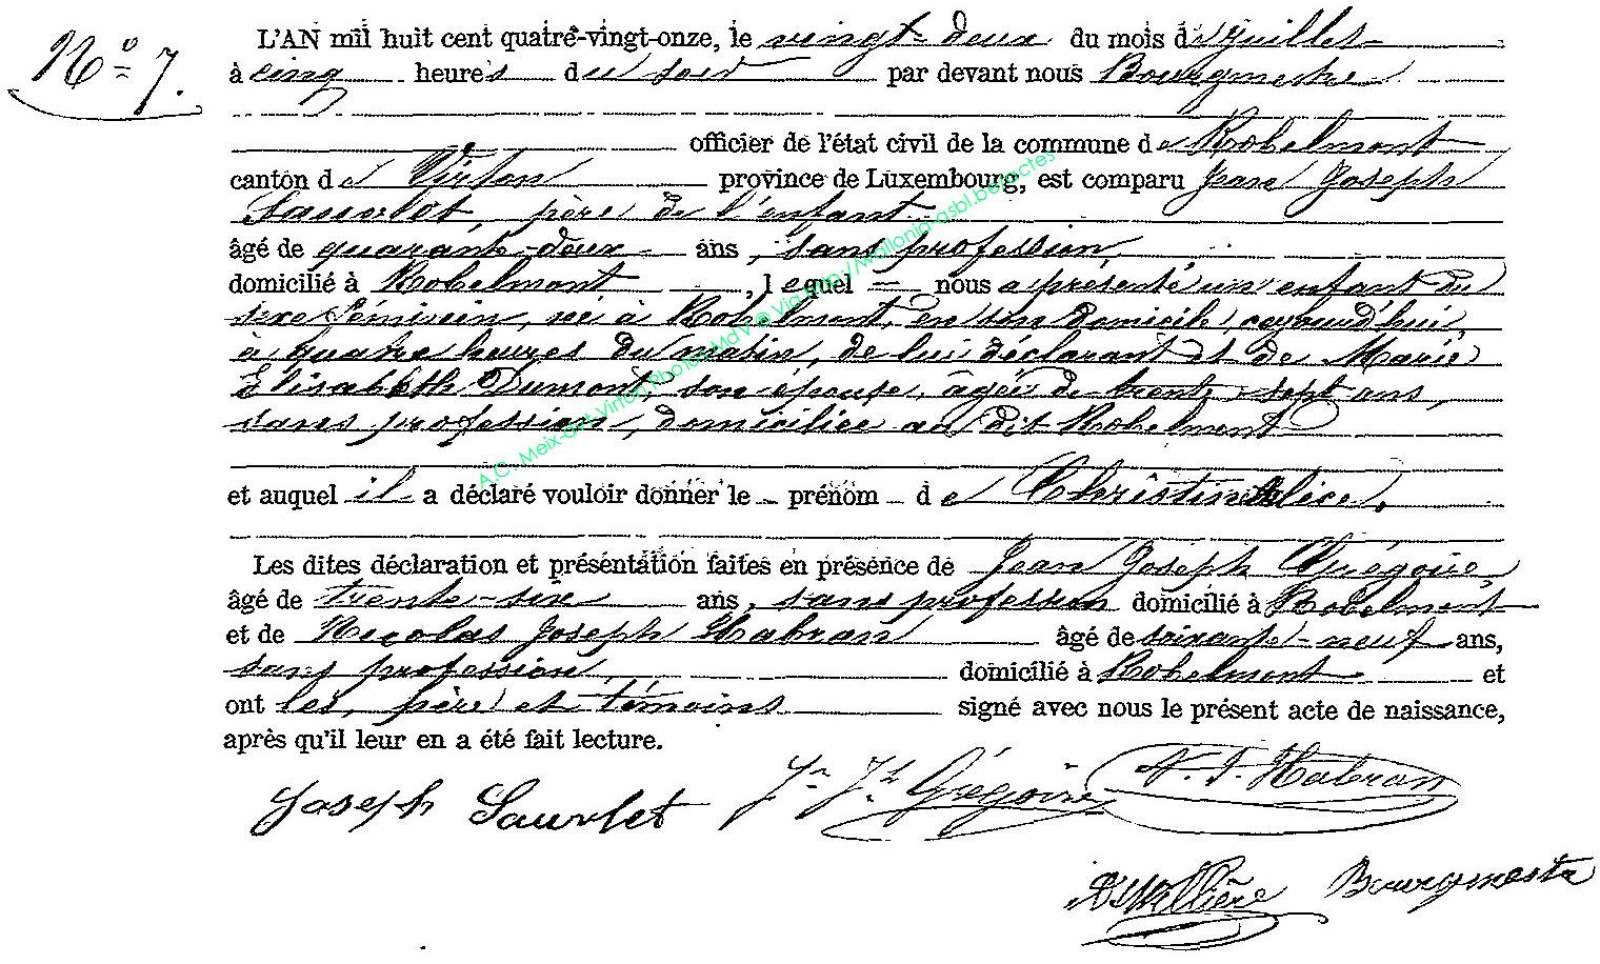 N° 7.
L'AN mil huit cent quatre-vingt-onze, le vingt-deux du mois de juillet
à cinq heures du soir par devant nous Bourgmestre
officier de l'état civil de la commune de Robelmont
canton de Virton province de Luxembourg, est comparu Jean Joseph
Saurlet, père de l'enfant
âgé de quarante-deux ans, sans profession,
domicilié à Robelmont, lequel nous a présenté un enfant du
sexe féminin, né à Robelmont, en son domicile, ceyourd'hui,
à quatre heures du matin, de lui déclarant et de Marie
Elisabeth Dumont, son épouse, âgée de trente-sept ans,
sans profession, domiciliée au dit Robelmont
et auquel il a déclaré vouloir donner le prénom de Christine Alice.
Les dites déclaration et présentation faites en présence de Jean Joseph Grégoire,
âgé de trente-six ans, sans profession domicilié à Robelmont
et de Nicolas Joseph Habran âgé de soixante-neuf ans,
sans profession, domicilié à Robelmont et
ont les, père et témoins signé avec nous le présent acte de naissance,
après qu'il leur en a été fait lecture.
Joseph Saurlet Jn Jh Grégoire N. J. Habran
Bourgmestre
A.C. Meix-dvt-Virton Photos MdV @ Via http://wallonia-asbl.be/actes